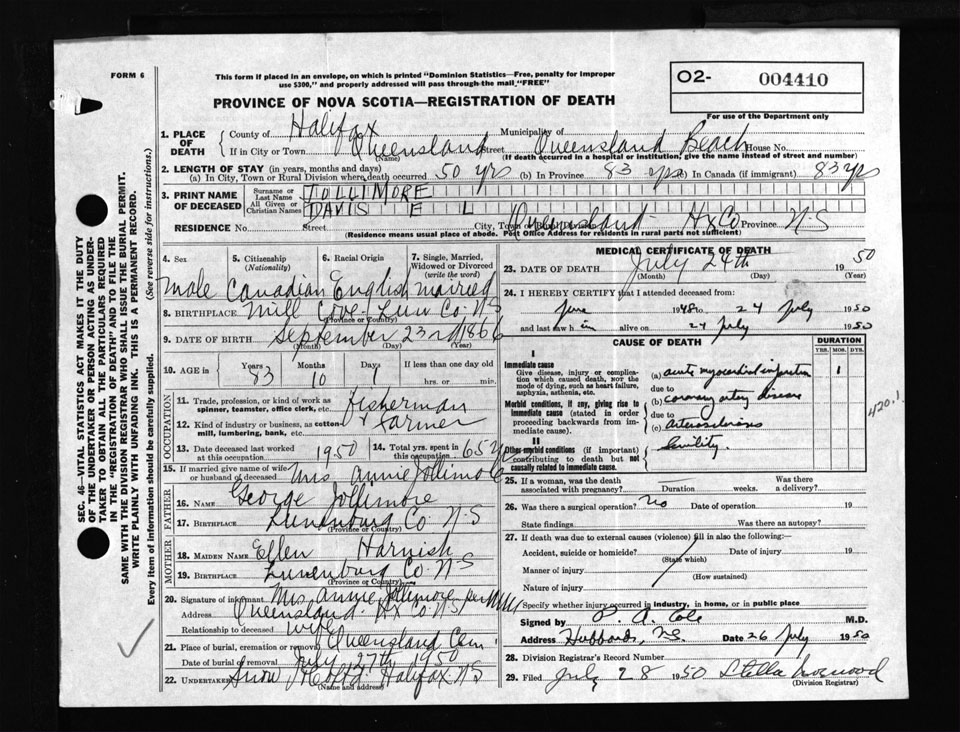 FORM 6
This form if placed in an envelope, on which is printed "Dominion Statistics—Free, penalty for improper
use $300," and properly addressed will pass through the mail "FREE"
O2- 004410
For use of the Department only
PROVINCE OF NOVA SCOTIA—REGISTRATION OF DEATH
1. PLACE OF DEATH
County of Halifax Municipality of
If in City or Town Queensland Street Queensland Beach House No.
(Name) (If death occurred in a hospital or institution, give the name instead of street and number)
2. LENGTH OF STAY (in years, months and days)
(a) In City, Town or Rural Division where death occurred 50 yrs (b) In Province 83 yrs (c) In Canada (if immigrant) 83 yrs
3. PRINT NAME OF DECEASED
Surname or Last Name JOLLIMORE
All Given or Christian Names DAVIS E L
RESIDENCE No. Street City, Town or Rural Division Queensland Hx Co Province N-S
(Residence means usual place of abode. Post Office Address for residents in rural parts not sufficient)
4. Sex 5. Citizenship (Nationality) 6. Racial Origin 7. Single, Married, Widowed or Divorced (write the word)
male Canadian English married
8. BIRTHPLACE Mill Cove Lun Co. NS
(Province or Country)
9. DATE OF BIRTH September 23rd 1866
(Month) (Day) (Year)
10. AGE in Years 83 Months 10 Days 1 If less than one day old hrs. or min.
OCCUPATION
11. Trade, profession, or kind of work as spinner, teamster, office clerk, etc. Fisherman
12. Kind of industry or business, as cotton mill, lumbering, bank, etc. Farmer
13. Date deceased last worked at this occupation 1950 14. Total yrs. spent in this occupation 65 yrs
15. If married give name of wife or husband of deceased Mrs Annie Jollimore
FATHER
16. Name George Jollimore
17. Birthplace Lunenburg Co N-S
(Province or Country)
MOTHER
18. Maiden Name Ellen Harnish
19. Birthplace Lunenburg Co N-S
(Province or Country)
20. Signature of informant Mrs. Annie Jollimore per
Address Queensland Hx Co NS
Relationship to deceased wife
21. Place of burial, cremation or removal Queensland Cem
Date of burial or removal July 27th 1950
22. Undertaker Snow & Co Ltd. Halifax NS
(Name and address)
MEDICAL CERTIFICATE OF DEATH
23. DATE OF DEATH July 24th 1950
(Month) (Day) (Year)
24. I HEREBY CERTIFY that I attended deceased from
June 1948 to 24 July 1950
and last saw him alive on 24 July 1950
CAUSE OF DEATH DURATION
YRS. MOS. DYS.
I
Immediate cause
Give disease, injury or complication which caused death, NOT the mode of dying, such as heart failure, asphyxia, asthenia, etc.
(a) acute myocardial infarction 1
due to
Morbid conditions, if any, giving rise to immediate cause (stated in order proceeding backwards from immediate cause).
(b) coronary artery disease
due to
(c) arteriosclerosis
420.1
II
Other morbid conditions (if important) contributing to death but not causally related to immediate cause.
Senility
25. If a woman, was the death associated with pregnancy? Duration weeks. Was there a delivery?
26. Was there a surgical operation? no Date of operation 19
State findings Was there an autopsy?
27. If death was due to external causes (violence) fill in also the following:—
Accident, suicide or homicide? Date of injury 19
(State which)
Manner of injury
(How sustained)
Nature of injury
Specify whether injury occurred in industry, in home, or in public place
Signed by P. A. Cole M.D.
Address Hubbards, N.S. Date 26 July 1950
28. Division Registrar's Record Number
29. Filed July 28 1950 Stella
(Division Registrar)
SEC. 46—VITAL STATISTICS ACT MAKES IT THE DUTY
OF THE UNDERTAKER OR PERSON ACTING AS UNDERTAKER
TO OBTAIN ALL THE PARTICULARS REQUIRED
IN THE "REGISTRATION OF DEATH" AND TO FILE THE
SAME WITH THE DIVISION REGISTRAR WHO SHALL ISSUE THE BURIAL PERMIT.
WRITE PLAINLY WITH UNFADING INK. THIS IS A PERMANENT RECORD.
Every item of information should be carefully supplied. (See reverse side for instructions.)